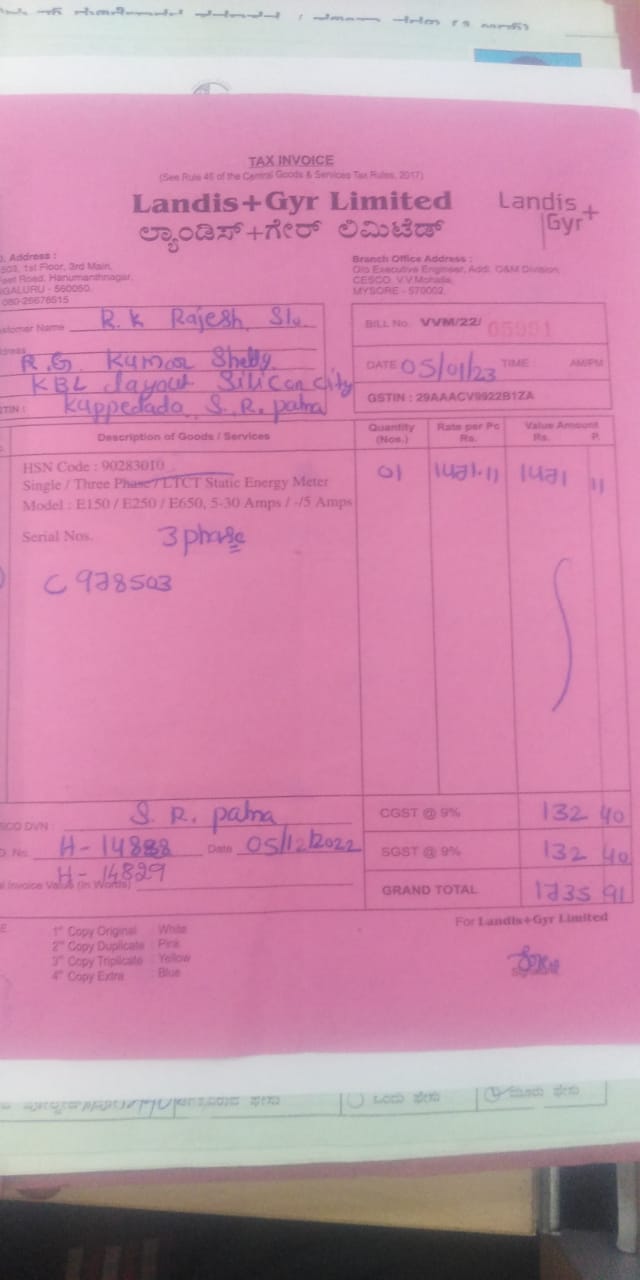 TAX INVOICE
(See Rule 46 of the Central Goods & Services Tax Rules, 2017)
Landis+Gyr Limited
ಲ್ಯಾಂಡಿಸ್+ಗೇರ್ ಲಿಮಿಟೆಡ್
Landis
Gyr+
Address :
503, 1st Floor, 3rd Main,
Feet Road, Hanumanthnagar,
GALURU - 560050.
080-26676515
Branch Office Address :
O/o Executive Engineer, Addl. O&M Division,
CESCO, V.V.Mohalla,
MYSORE - 570002.
stomer Name R. K Rajesh, S/o
dress R.G. Kumar Shetty
KBL layout Silicon city
TIN : Kuppedada S. R. patna
BILL No. VVM/22/ 05991
DATE 05/01/23 TIME AM/PM
GSTIN : 29AAACV9922B1ZA
Description of Goods / Services
Quantity (Nos.)
Rate per Pc Rs.
Value Amount Rs. P.
HSN Code : 90283010
Single / Three Phase / LTCT Static Energy Meter
Model : E150 / E250 / E650, 5-30 Amps / -/5 Amps
01 1471.11 1471 11
Serial Nos. 3 phase
C 978503
SCO DVN : S. R. patna
CGST @ 9% 132 40
O. No. H-14888 Date 05/12/2022
H-14829
SGST @ 9% 132 40
l Invoice Value (In Words)
GRAND TOTAL 1735 91
For Landis+Gyr Limited
1st Copy Original : White
2nd Copy Duplicate : Pink
3rd Copy Triplicate : Yellow
4th Copy Extra : Blue